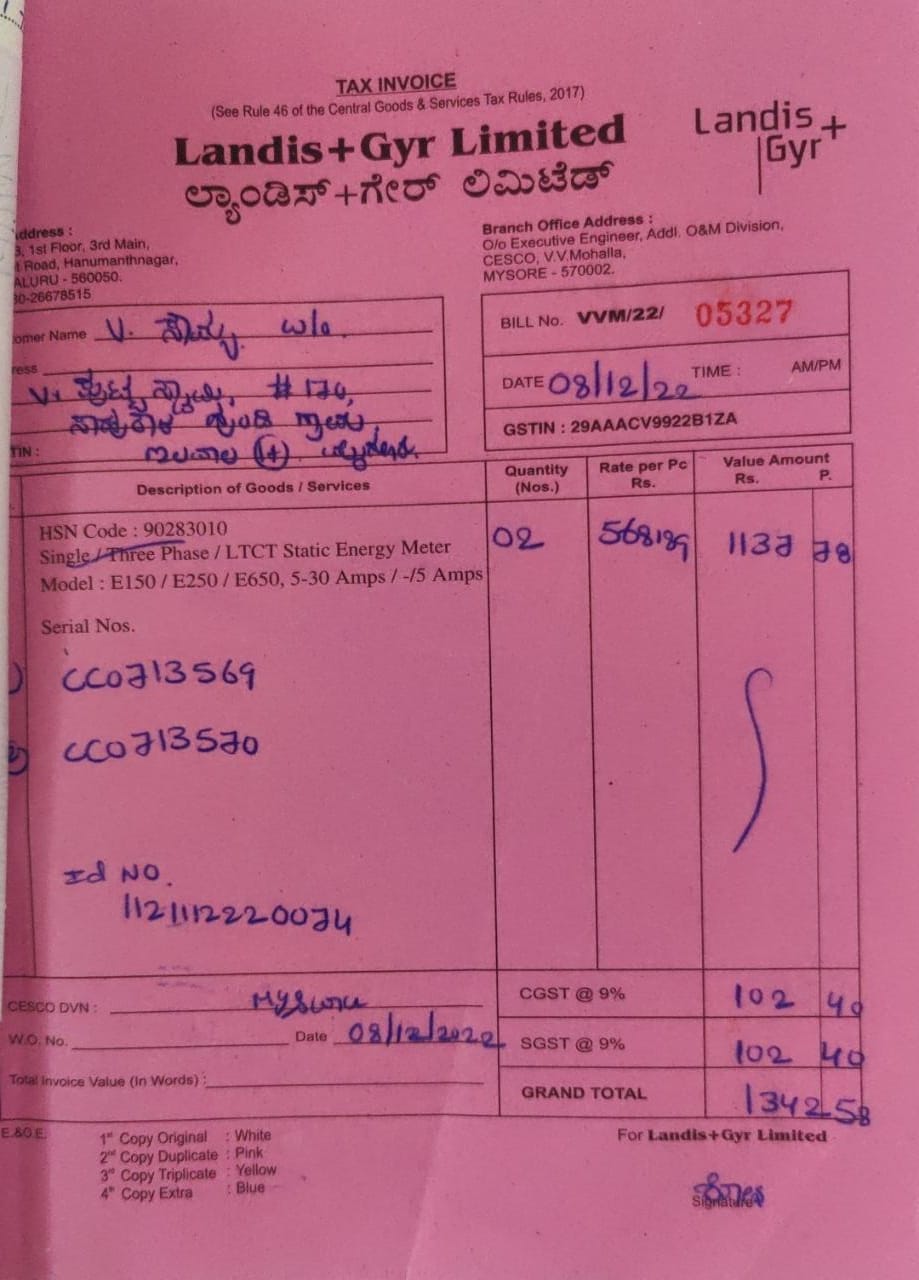 TAX INVOICE
(See Rule 46 of the Central Goods & Services Tax Rules, 2017)
Landis+Gyr Limited
ಲ್ಯಾಂಡಿಸ್+ಗೇರ್ ಲಿಮಿಟೆಡ್
Landis+
Gyr
ddress :
3, 1st Floor, 3rd Main,
t Road, Hanumanthnagar,
ALURU - 560050.
80-26678515
Branch Office Address :
O/o Executive Engineer, Addl. O&M Division,
CESCO, V.V.Mohalla,
MYSORE - 570002.
omer Name V. ಸೌಮ್ಯ w/o
ress
# 170,
TIN :
BILL No. VVM/22/ 05327
DATE 08/12/22 TIME : AM/PM
GSTIN : 29AAACV9922B1ZA
Description of Goods / Services
Quantity (Nos.)
Rate per Pc Rs.
Value Amount Rs. P.
HSN Code : 90283010
Single / Three Phase / LTCT Static Energy Meter
Model : E150 / E250 / E650, 5-30 Amps / -/5 Amps
02 568.89 1137 78
Serial Nos.
1) CC0713569
2) CC0713570
Id NO.
1121112220074
CESCO DVN : Mysore
W.O. No. Date 08/12/2022
Total Invoice Value (In Words) :
CGST @ 9% 102 40
SGST @ 9% 102 40
GRAND TOTAL 1342 58
E.&O.E.
1st Copy Original : White
2nd Copy Duplicate : Pink
3rd Copy Triplicate : Yellow
4th Copy Extra : Blue
For Landis+Gyr Limited
Signature